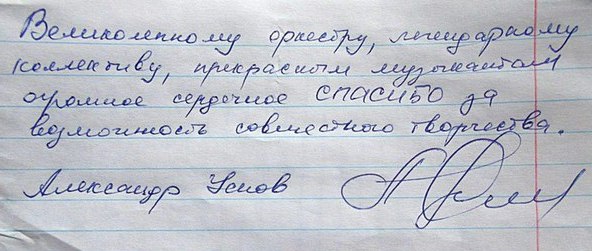 Великолепному оркестру, легендарному
коллективу, прекрасным музыкантам
огромное сердечное СПАСИБО за
возможность совместного творчества.
Александр Усов